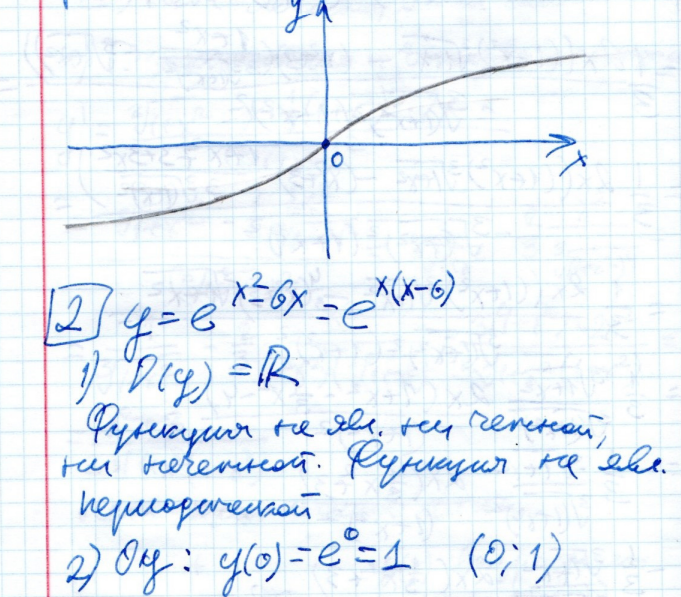 y
0
x
2 y = e^{x²-6x} = e^{x(x-6)}
1) D(y) = ℝ
Функция не явл. ни четной,
ни нечетной. Функция не явл.
периодической
2) Oy: y(0) = e⁰ = 1 (0; 1)